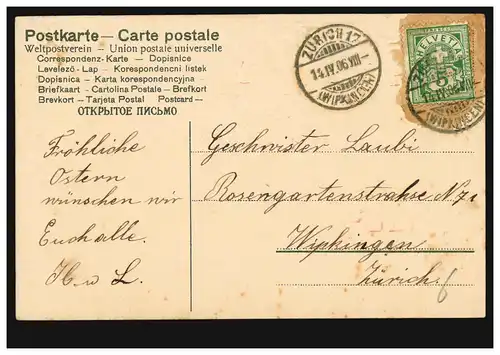 Postkarte — Carte postale
Weltpostverein - Union postale universelle
Correspondenz-Karte — Dopisnice
Levelező-Lap — Korespondencni listek
Dopisnica - Karta korespondencyjna
Briefkaart - Cartolina Postale - Brefkort
Brevkort - Tarjeta Postal Postcard —
ОТКРЫТОЕ ПИСЬМО
ZÜRICH 17
14.IV.06.VIII
(WIPKINGEN)
HELVETIA
5
(WIPKINGEN)
Fröhliche
Ostern
wünschen wir
Euch alle.
H. u L.
Geschwister Laubi
Rosengartenstrahse N 71
Wipkingen
Zürich 6